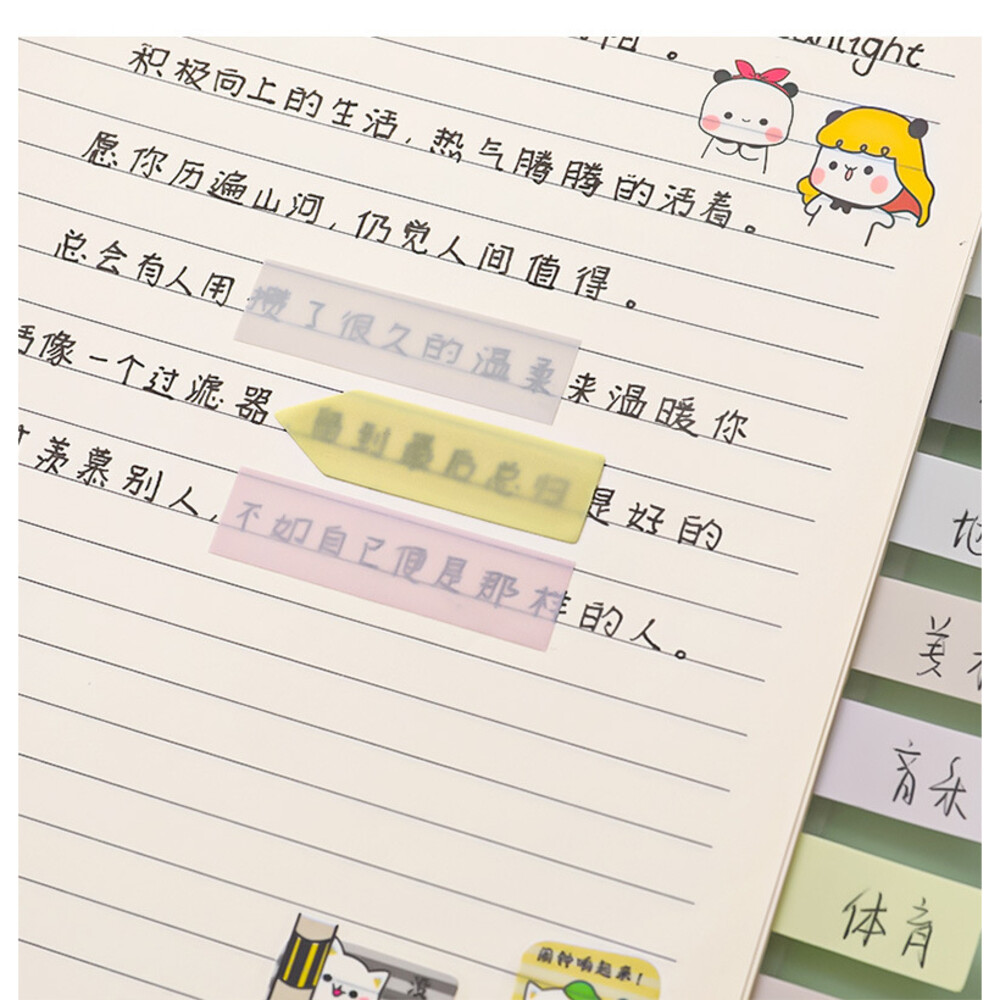 light
积极向上的生活，热气腾腾的活着。
愿你历遍山河，仍觉人间值得。
总会有人用攒了很久的温柔来温暖你
像一个过滤器留到最后总归是好的
羡慕别人，不如自己便是那样的人。
地
美
音乐
体育
没
闹钟响起来！